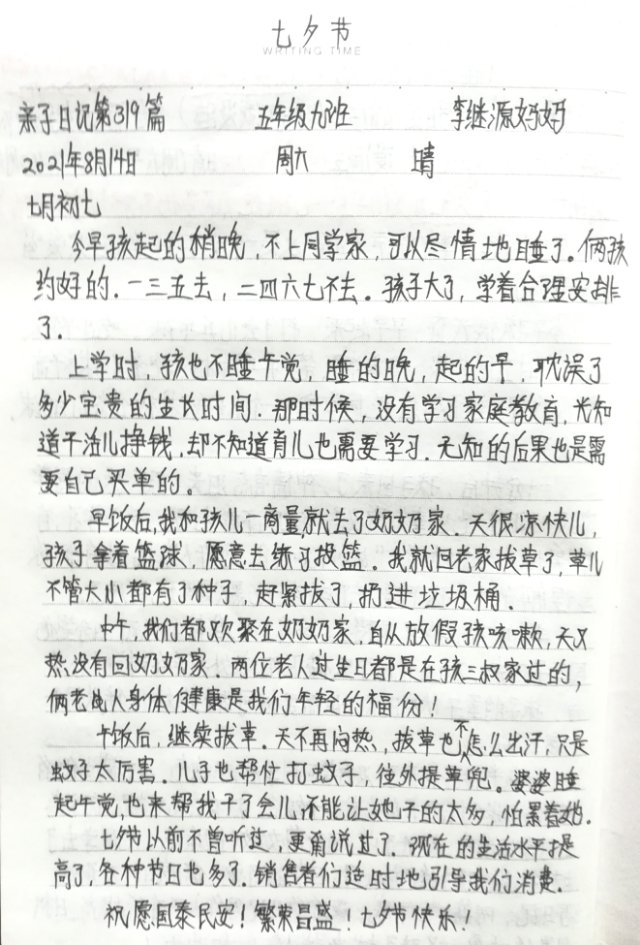 七夕节
WRITING TIME
亲子日记第319篇 五年级九班 李继源妈妈
2021年8月14日 周六 晴
七月初七
今早孩起的稍晚，不上同学家，可以尽情地睡了。俩孩
约好的.一三五去，二四六七不去。孩子大了，学着合理安排
了.
上学时，孩也不睡午觉，睡的晚，起的早，耽误了
多少宝贵的生长时间.那时候，没有学习家庭教育，光知
道干活儿挣钱，却不知道育儿也需要学习.无知的后果也是需
要自己买单的。
早饭后,我和孩儿一商量,就去了奶奶家.天很凉快儿，
孩子拿着篮球，愿意去练习投篮.我就回老家拔草了，草儿
不管大小都有了种子，赶紧拔了，扔进垃圾桶.
中午，我们都欢聚在奶奶家.自从放假孩咳嗽，天又
热没有回奶奶家.两位老人过生日都是在孩三叔家过的，
俩老人身体健康是我们年轻的福份！
午饭后，继续拔草.天不再闷热，拔草也不怎么出汗，只是
蚊子太厉害.儿子也帮忙打蚊子，往外提草兜。婆婆睡
起午觉,也来帮我干了会儿,不能让她干的太多，怕累着她.
七夕节以前不曾听过，更甭说过了.现在的生活水平提
高了,各种节日也多了.销售者们适时地引导我们消费.
祝愿国泰民安！繁荣昌盛.七夕节快乐！